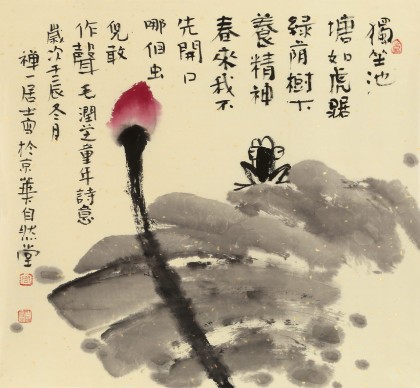 獨坐池
塘如虎踞
綠蔭樹下
養精神
春來我不
先開口
哪個虫
兒敢
作聲 毛潤芝童年詩意
歲次壬辰冬月
禪一居士寫於京華自然堂